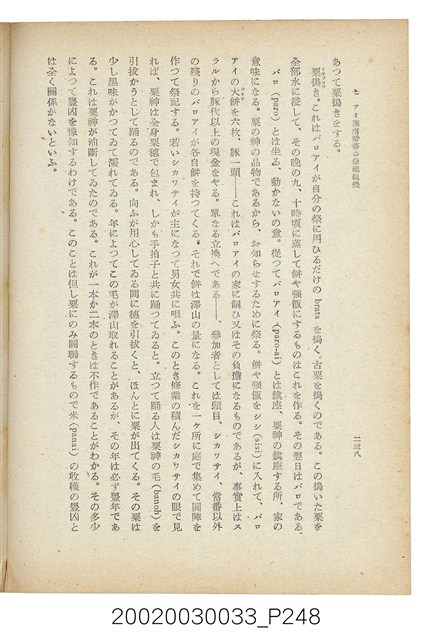 二三八
あつて粟搗きをする。
粟搗き。これはパロアイが自分の祭に用ひるだけの を搗く、古粟を搗くのである。この搗いた粟を
全部水に浸して、その晩の九、十時頃に蒸して餅や强飯にするものはこれを作る。その翌日はパロである。
パロ (paro) とは坐る、動かないの意。從つてパロアイ (paro-ai) とは鎭座、粟神の鎭座する所、家の
意味になる。粟の神の品物であるから、お知らせするために祭る。餅や强飯をシシ (sisi) に入れて、パロ
アイの大餅を六枚、豚一頭——これはパロアイの家に飼ひ又はその負擔になるものであるが、事實上はス
ラルから豚代以上の現金をやる。單なる立換へである——、參加者としては頭目、シカワサイ、當番以外
の殘りのパロアイが各自餅を持つてくる。それで餅は澤山の量になる。これを一ケ所に庭で集めて圓陣を
作つて祭祀する。若いシカワサイが主になつて男女共に唄ふ。このとき修業の積んだシカワサイの眼で見
れば、粟神は全身粟穗で包まれ、しかも手拍子と共に踊つてゐると。立つて踊る人は粟神の毛 (banoh) を
引拔かうとして踊るのである。向ふが用心してゐる間に穗を引拔くと、ほんとに粟が出てくる。その粟は
少し黑味がかつてゐて濡れてゐる。年によつてこの毛が澤山取れることがあるが、その年は必ず豐年であ
る。これは粟神が油斷してゐたのである。これが一本か二本のときは不作であることがわかる。その多少
によつて豐凶を豫知するわけである。このことは但し粟にのみ關聯するもので米 (panai) の收穫の豐凶と
は全く關係がないといふ。
20020030033_P248